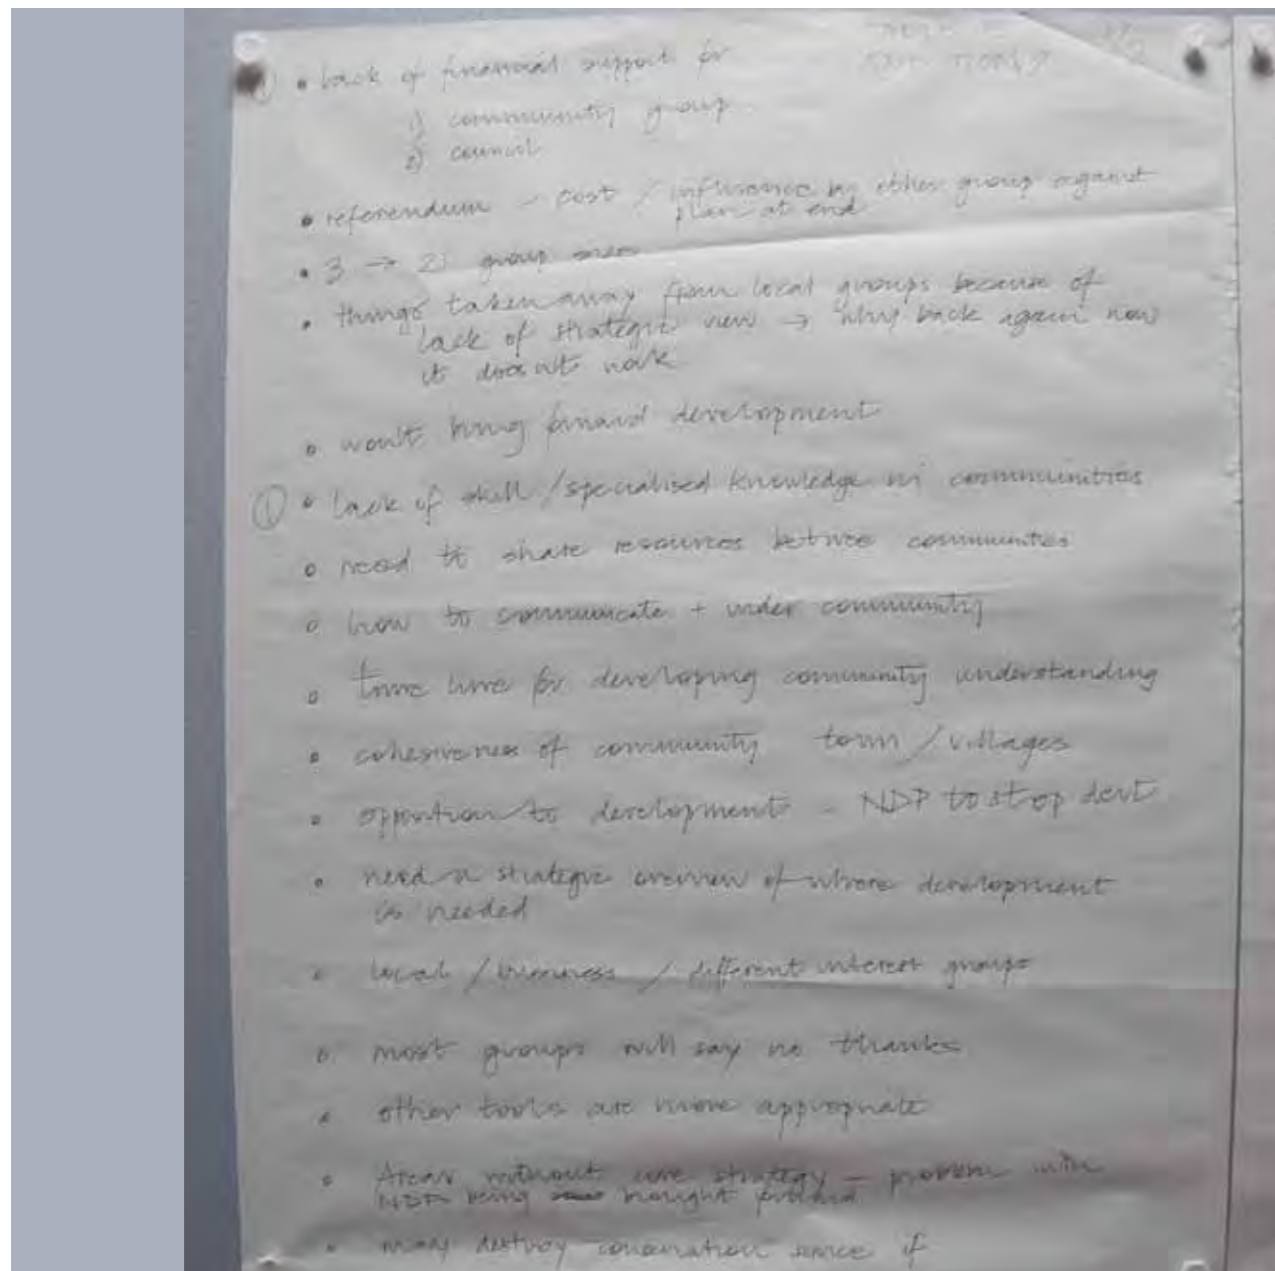 ① • Lack of financial support for
1) community group
2) council
• referendum – cost / influence by other group against
plan at end
• 3 → 21 group
• things taken away from local groups because of
lack of strategic view → why back again now
it doesn't work
• won't bring forward development
① • lack of skill / specialised knowledge in communities
• need to share resources betwee communities
• how to communicate + wider community
• time line for developing community understanding
• cohesiveness of community town / villages
• opposition to development – NDP to stop devt
• need a strategic overview of where development
is needed
• local / business / different interest groups
• most groups will say no thanks
• other tools are more appropriate
• Areas without core strategy – problem with
NDPs being brought forward
• may destroy conservation service if